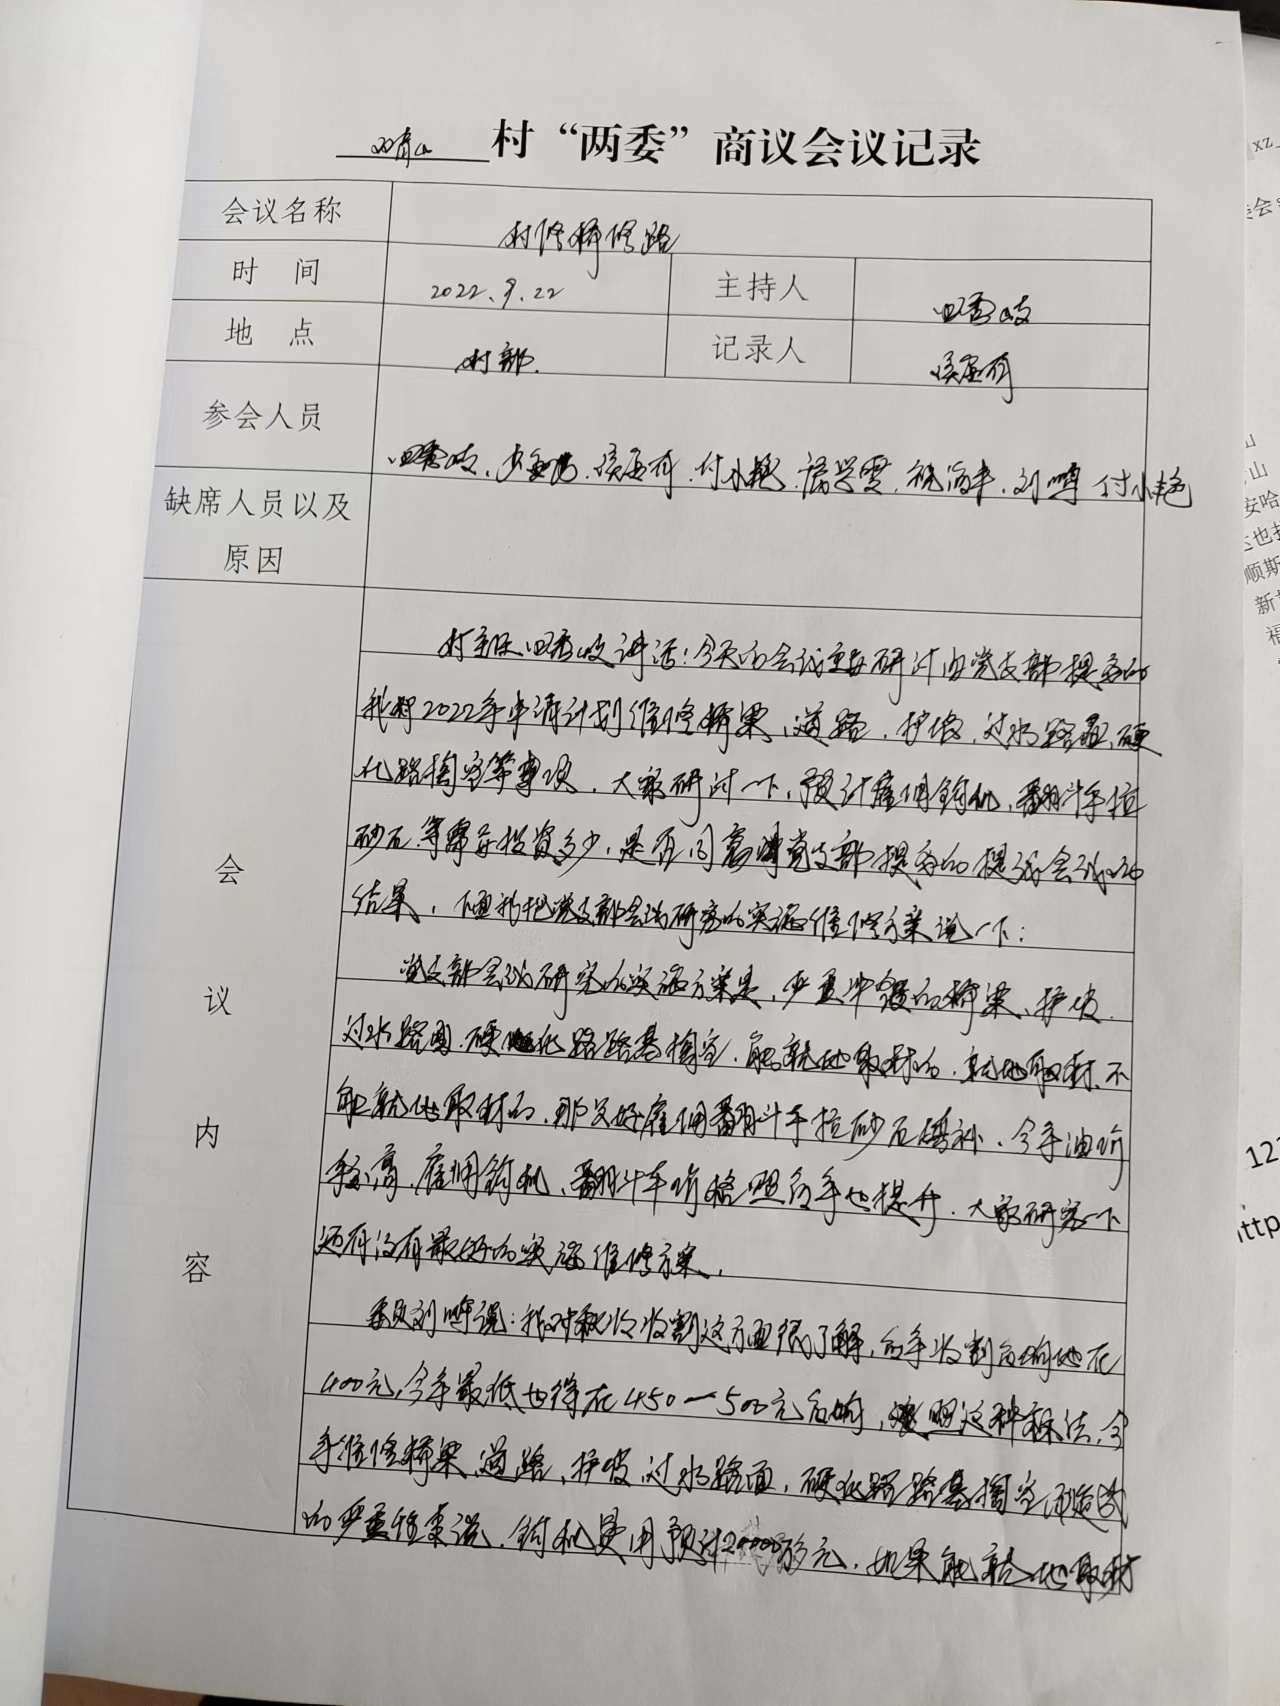 村“两委”商议会议记录
会议名称 村修桥修路
时 间 2022.9.22 主持人
地 点 村部. 记录人
参会人员
付小艳 刘 付小艳
缺席人员以及
原因
会
议
内
容
村主任 讲话：今天的会议主要研讨由党支部提条的
我村2022年申请计划维修桥梁、道路、护坡、过水路面、硬
化路掏空等事项、大家研讨一下、预计雇佣钩机、翻斗车拉
砂石等需要投资多少，是否同意 党支部提条的提议会议
结果，下面我把党支部会议研究的实施维修方案说一下：
党支部会议研究的实施方案是，严重冲毁的桥梁、护坡、
过水路面、硬化路路基掏空、能就地取材的、就地取材、不
能就地取材的、那只好雇佣翻斗车拉砂石填补、今年油价
较高、雇佣钩机、翻斗车价格照每年也提升、大家研究一下
还有没有最好的实施维修方案、
委员刘 说：我对秋收收割这方面很了解，每年收割每垧地在
400元，今年最低也得在450一500元每垧，按照这种标准，今
年维修桥梁、道路、护坡、过水路面、硬化路路基掏空
的严重性来说、钩机费用预计20000 元、如果能就地取材
xz_
山
山
安哈
顺斯
新
福
12
http